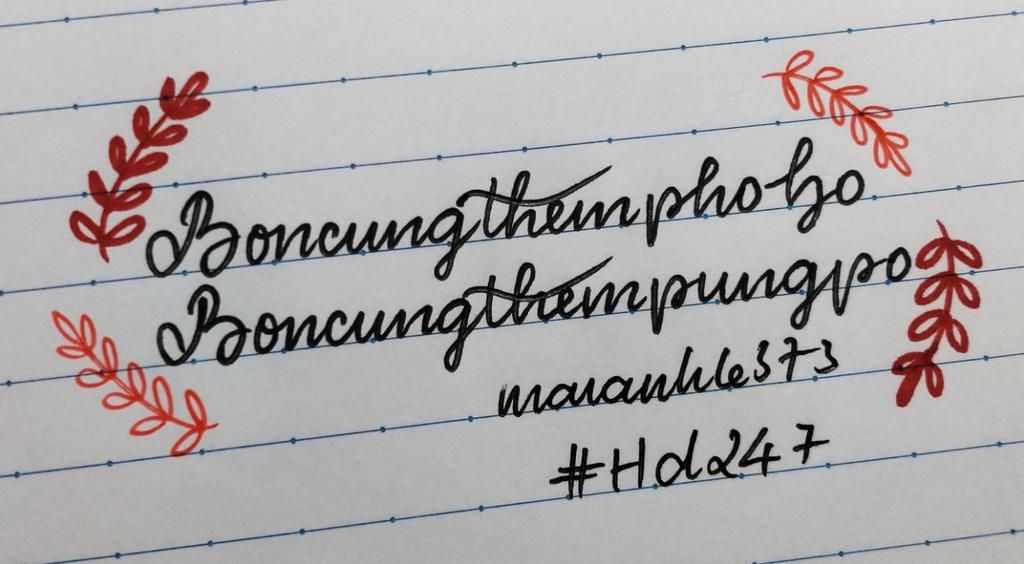 Boncungthemphobo
Boncungthempungpo
maianhle373
#Hd247